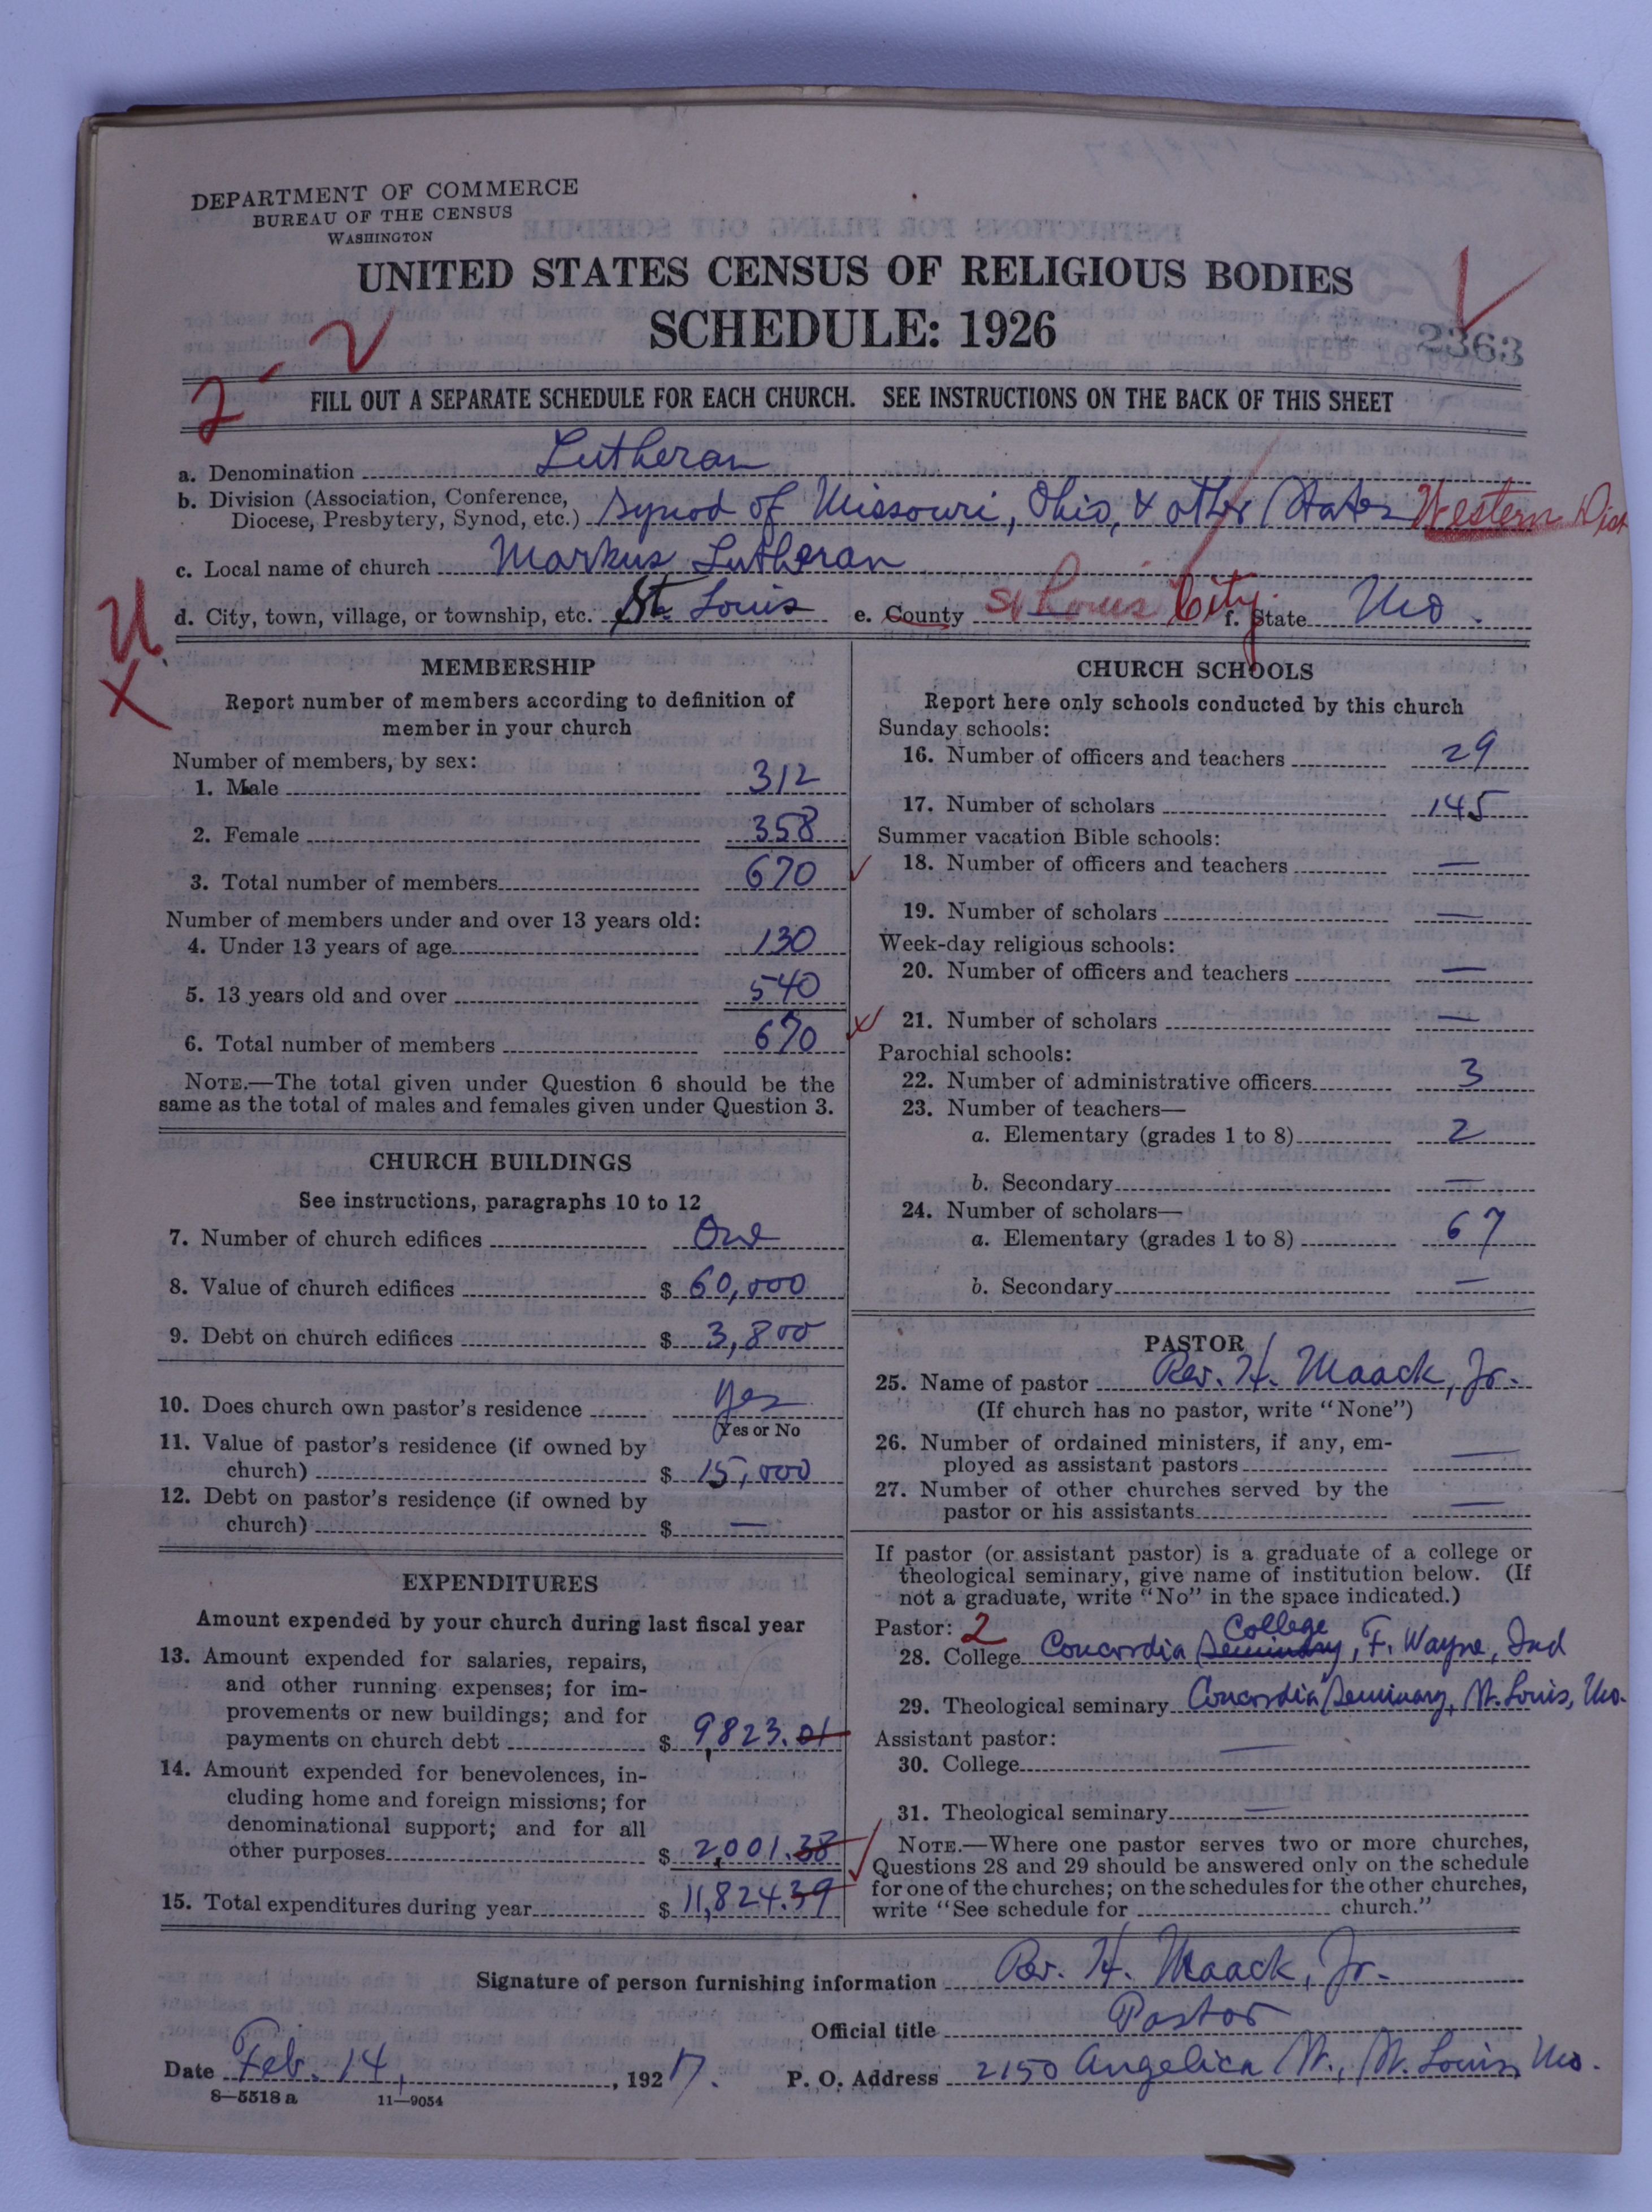 DEPARTMENT OF COMMERCE
BUREAU OF THE CENSUS
WASHINGTON
UNITED STATES CENSUS OF RELIGIOUS BODIES
SCHEDULE: 1926
2363
2-2
FILL OUT A SEPARATE SCHEDULE FOR EACH CHURCH. SEE INSTRUCTIONS ON THE BACK OF THIS SHEET
a. Denomination Lutheran
b. Division (Association, Conference, Diocese, Presbytery, Synod, etc.) Synod of Missouri, Ohio, & other States Western Dist
c. Local name of church Markus Lutheran
d. City, town, village, or township, etc. St. Louis e. County St Louis City. f. State Mo.
U
X
MEMBERSHIP
Report number of members according to definition of
member in your church
Number of members, by sex:
1. Male 312
2. Female 358
3. Total number of members 670
Number of members under and over 13 years old:
4. Under 13 years of age 130
5. 13 years old and over 540
6. Total number of members 670
NOTE.—The total given under Question 6 should be the
same as the total of males and females given under Question 3.
CHURCH BUILDINGS
See instructions, paragraphs 10 to 12
7. Number of church edifices One
8. Value of church edifices $ 60,000
9. Debt on church edifices $ 3,800
10. Does church own pastor's residence Yes
Yes or No
11. Value of pastor's residence (if owned by
church) $ 15,000
12. Debt on pastor's residence (if owned by
church) $ —
EXPENDITURES
Amount expended by your church during last fiscal year
13. Amount expended for salaries, repairs,
and other running expenses; for im-
provements or new buildings; and for
payments on church debt $ 9,823.01
14. Amount expended for benevolences, in-
cluding home and foreign missions; for
denominational support; and for all
other purposes $ 2,001.38
15. Total expenditures during year $ 11,824.39
CHURCH SCHOOLS
Report here only schools conducted by this church
Sunday schools:
16. Number of officers and teachers 29
17. Number of scholars 145
Summer vacation Bible schools:
18. Number of officers and teachers —
19. Number of scholars —
Week-day religious schools:
20. Number of officers and teachers —
21. Number of scholars —
Parochial schools:
22. Number of administrative officers 3
23. Number of teachers—
a. Elementary (grades 1 to 8) 2
b. Secondary —
24. Number of scholars—
a. Elementary (grades 1 to 8) 67
b. Secondary —
PASTOR
25. Name of pastor Rev. H. Maack, Jr.
(If church has no pastor, write "None")
26. Number of ordained ministers, if any, em-
ployed as assistant pastors —
27. Number of other churches served by the
pastor or his assistants —
If pastor (or assistant pastor) is a graduate of a college or
theological seminary, give name of institution below. (If
not a graduate, write "No" in the space indicated.)
Pastor: 2
28. College Concordia Seminary College, F. Wayne, Ind
29. Theological seminary Concordia Seminary, St. Louis, Mo.
Assistant pastor:
30. College —
31. Theological seminary —
NOTE.—Where one pastor serves two or more churches,
Questions 28 and 29 should be answered only on the schedule
for one of the churches; on the schedules for the other churches,
write "See schedule for church."
Signature of person furnishing information Rev. H. Maack, Jr.
Official title Pastor
Date Feb. 14, 1927. P. O. Address 2150 Angelica St., St. Louis, Mo.
8—5518 a 11—9054